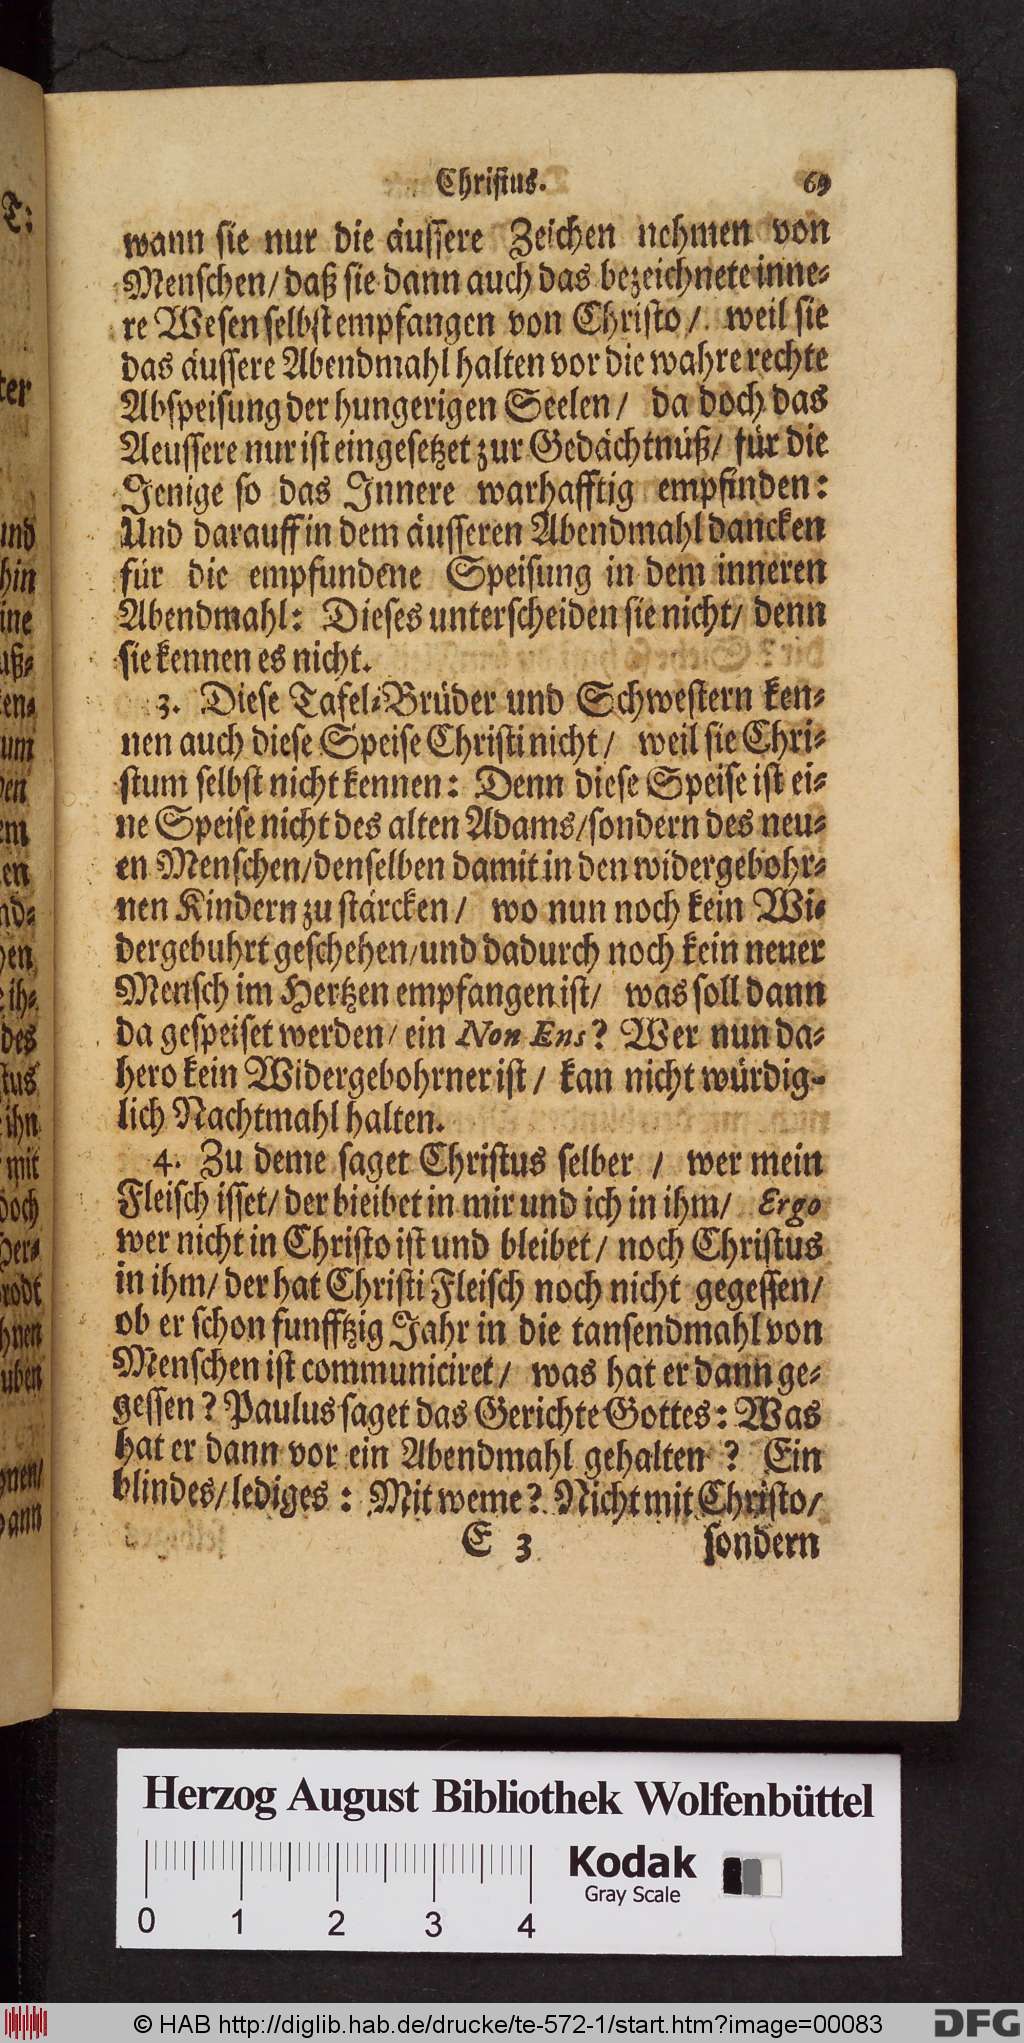 Christus. 69
wann sie nur die äussere Zeichen nehmen von
Menschen/ daß sie dann auch das bezeichnete inne-
re Wesen selbst empfangen von Christo/ weil sie
das äussere Abendmahl halten vor die wahre rechte
Abspeisung der hungerigen Seelen/ da doch das
Aeussere nur ist eingesetzet zur Gedächtnüß/ für die
Jenige so das Innere warhafftig empfinden:
Und darauff in dem äusseren Abendmahl dancken
für die empfundene Speisung in dem inneren
Abendmahl: Dieses unterscheiden sie nicht/ denn
sie kennen es nicht.
3. Diese Tafel-Brüder und Schwestern ken-
nen auch diese Speise Christi nicht/ weil sie Chri-
stum selbst nicht kennen: Denn diese Speise ist ei-
ne Speise nicht des alten Adams/ sondern des neu-
en Menschen/ denselben damit in den widergebohr-
nen Kindern zu stärcken/ wo nun noch kein Wi-
dergebuhrt geschehen/ und dadurch noch kein neuer
Mensch im Hertzen empfangen ist/ was soll dann
da gespeiset werden/ ein Non Ens? Wer nun da-
hero kein Widergebohrner ist/ kan nicht würdig-
lich Nachtmahl halten.
4. Zu deme saget Christus selber / wer mein
Fleisch isset/ der bieibet in mir und ich in ihm/ Ergo
wer nicht in Christo ist und bleibet/ noch Christus
in ihm/ der hat Christi Fleisch noch nicht gegessen/
ob er schon funfftzig Jahr in die tansendmahl von
Menschen ist communiciret/ was hat er dann ge-
gessen? Paulus saget das Gerichte Gottes: Was
hat er dann vor ein Abendmahl gehalten? Ein
blindes/ lediges: Mit weme? Nicht mit Christo/
E 3 sondern
T:
ter
und
hin
ine
uß-
ken-
um
den
em
en
nd-
hen
e ih-
des
stus
ihn
mit
doch
Her-
rodt
hnen
uben
hnen/
dann
Herzog August Bibliothek Wolfenbüttel
0 1 2 3 4
Kodak
Gray Scale
© HAB http://diglib.hab.de/drucke/te-572-1/start.htm?image=00083
DFG